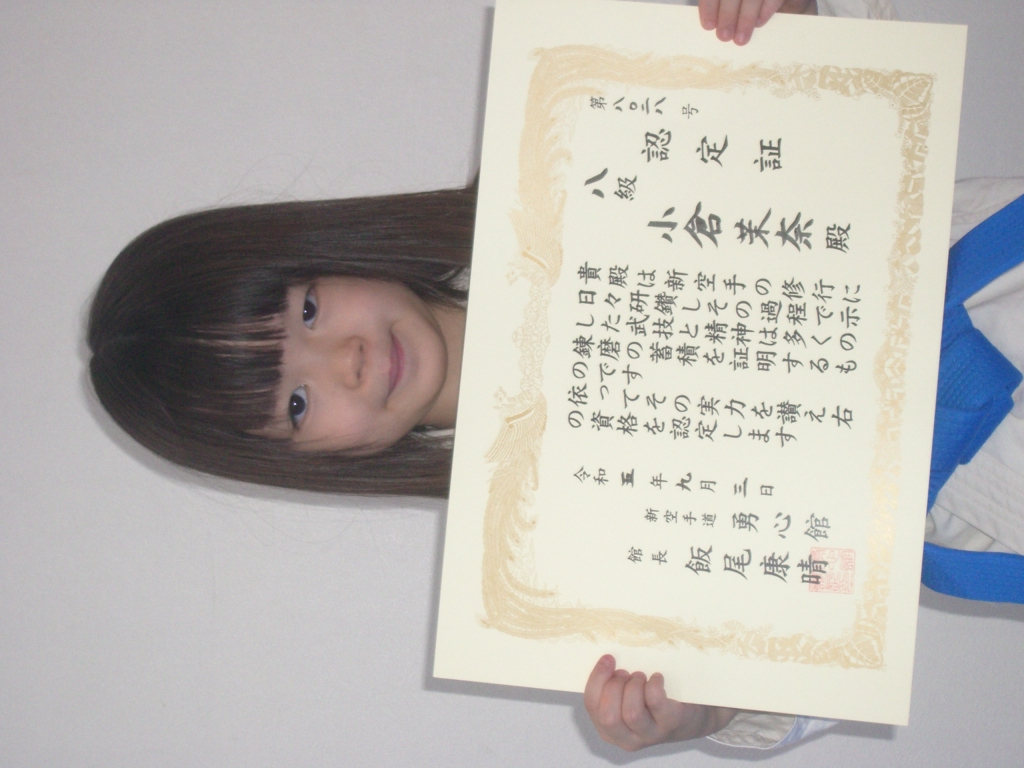 第八〇二八号
認定証
八級
小倉茉奈 殿
貴殿は新空手の修行に
日々研鑽しその過程で示
した武技と精神は多くの
錬磨の蓄積を証明するも
のです
依ってその実力を讃え右
の資格を認定します
令和五年九月三日
新空手道 勇心館
館長 飯尾康晴